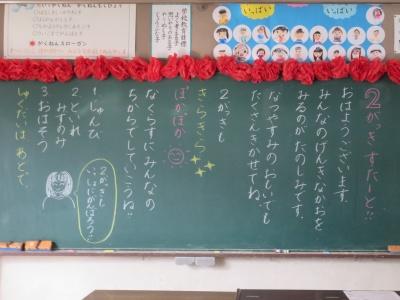 いっぱい
いっぱい
学校教育目標
がくねんスローガン
2がっき すたーと!!
おはようございます。
みんなのげんきなかおを
みるのがたのしみです。
なつやすみのおもいでも
たくさんきかせてね。
2がっきも
きらきら
ぽかぽか
なくらすにみんなの
ちからでしていこうね!!
1 じゅんび
2 といれ
みずのみ
3 おはそう
しゅくだいは あとで。
2がっきも
いっしょにがんばろう!!